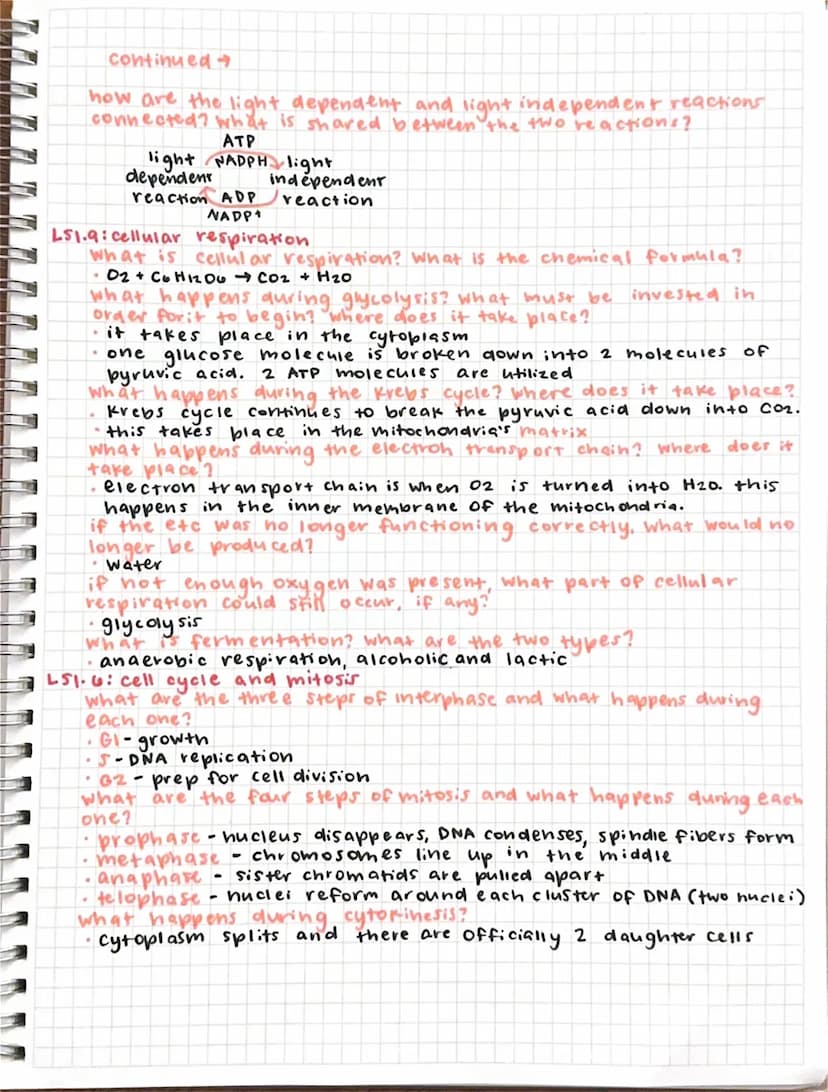 continued →
how are the light dependent and light independent reactions
connected? what is shared between the two reactions?
ATP
light NADPH light
dependent independent
reaction ADP reaction
NADP+
LS1.9: cellular respiration
what is cellular respiration? what is the chemical formula?
· O2 + C6H12O6 → CO2 + H2O
what happens during glycolysis? what must be invested in
order for it to begin? where does it take place?
· it takes place in the cytoplasm
· one glucose molecule is broken down into 2 molecules of
pyruvic acid. 2 ATP molecules are utilized
what happens during the krebs cycle? where does it take place?
· krebs cycle continues to break the pyruvic acid down into CO2.
· this takes place in the mitochondria's matrix
what happens during the electron transport chain? where does it
take place?
· electron transport chain is when O2 is turned into H2O. this
happens in the inner membrane of the mitochondria.
if the etc was no longer functioning correctly, what would no
longer be produced?
· water
if not enough oxygen was present, what part of cellular
respiration could still occur, if any?
· glycolysis
what is fermentation? what are the two types?
· anaerobic respiration, alcoholic and lactic
LS1.6: cell cycle and mitosis
what are the three steps of interphase and what happens during
each one?
· G1 - growth
· S - DNA replication
· G2 - prep for cell division
what are the four steps of mitosis and what happens during each
one?
· prophase - nucleus disappears, DNA condenses, spindle fibers form
· metaphase - chromosomes line up in the middle
· anaphase - sister chromatids are pulled apart
· telophase - nuclei reform around each cluster of DNA (two nuclei)
what happens during cytokinesis?
· cytoplasm splits and there are officially 2 daughter cells